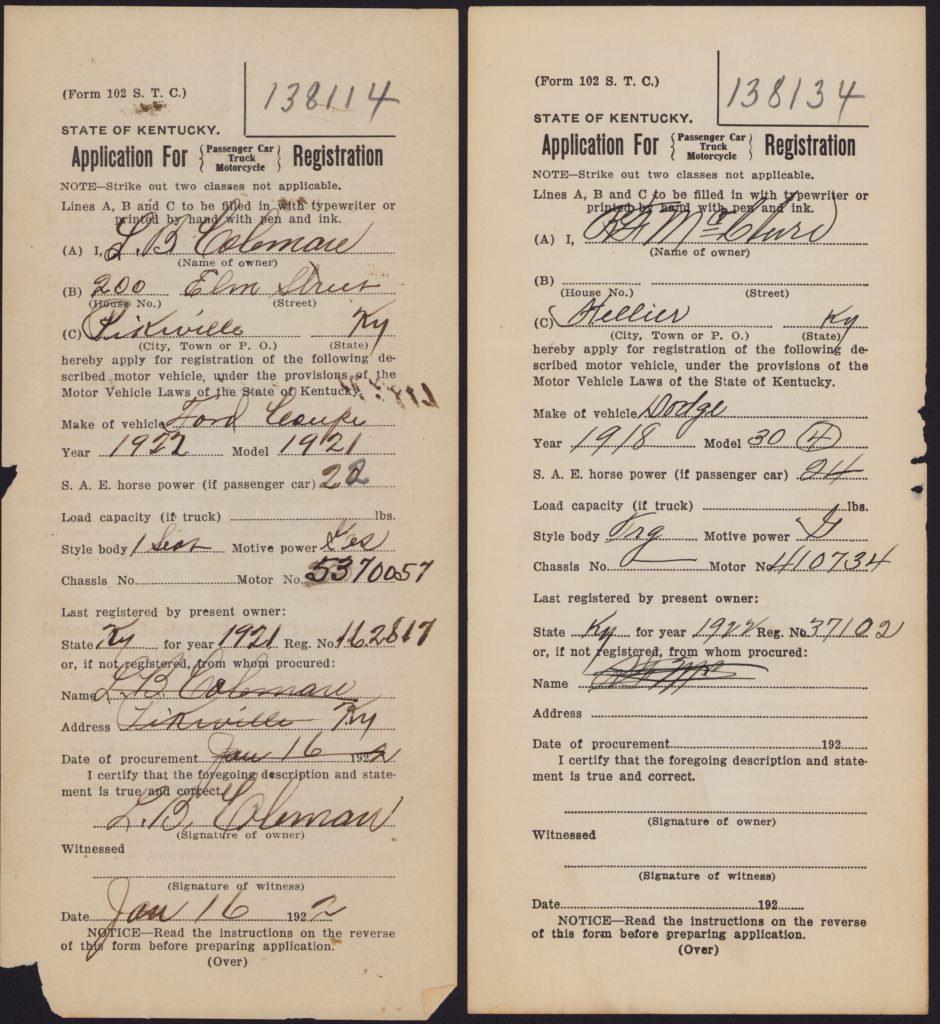 (Form 102 S. T. C.)
138114
STATE OF KENTUCKY.
Application For { Passenger Car Truck Motorcycle } Registration
NOTE—Strike out two classes not applicable.
Lines A, B and C to be filled in with typewriter or
printed by hand with pen and ink.
(A) I, L. B. Coleman
(Name of owner)
(B) 200 Elm Street
(House No.) (Street)
(C) Pikville Ky
(City, Town or P. O.) (State)
hereby apply for registration of the following de-
scribed motor vehicle, under the provisions of the
Motor Vehicle Laws of the State of Kentucky.
Make of vehicle Ford Coupe
Year 1922 Model 1921
S. A. E. horse power (if passenger car) 22
Load capacity (if truck) lbs.
Style body 1 Seat Motive power Gas
Chassis No. Motor No. 5370057
Last registered by present owner:
State Ky for year 1921 Reg. No. 162817
or, if not registered, from whom procured:
Name L. B. Coleman
Address Pikville Ky
Date of procurement Jan 16 1922
I certify that the foregoing description and state-
ment is true and correct.
L. B. Coleman
(Signature of owner)
Witnessed
(Signature of witness)
Date Jan 16 1922
NOTICE—Read the instructions on the reverse
of this form before preparing application.
(Over)
(Form 102 S. T. C.)
138134
STATE OF KENTUCKY.
Application For { Passenger Car Truck Motorcycle } Registration
NOTE—Strike out two classes not applicable.
Lines A, B and C to be filled in with typewriter or
printed by hand with pen and ink.
(A) I, McClure
(Name of owner)
(B)
(House No.) (Street)
(C) Hellier Ky
(City, Town or P. O.) (State)
hereby apply for registration of the following de-
scribed motor vehicle, under the provisions of the
Motor Vehicle Laws of the State of Kentucky.
Make of vehicle Dodge
Year 1918 Model 30 4
S. A. E. horse power (if passenger car) 24
Load capacity (if truck) lbs.
Style body Trg Motive power G
Chassis No. Motor No. 410734
Last registered by present owner:
State Ky for year 1922 Reg. No. 37102
or, if not registered, from whom procured:
Name
Address
Date of procurement 192
I certify that the foregoing description and state-
ment is true and correct.
(Signature of owner)
Witnessed
(Signature of witness)
Date 192
NOTICE—Read the instructions on the reverse
of this form before preparing application.
(Over)